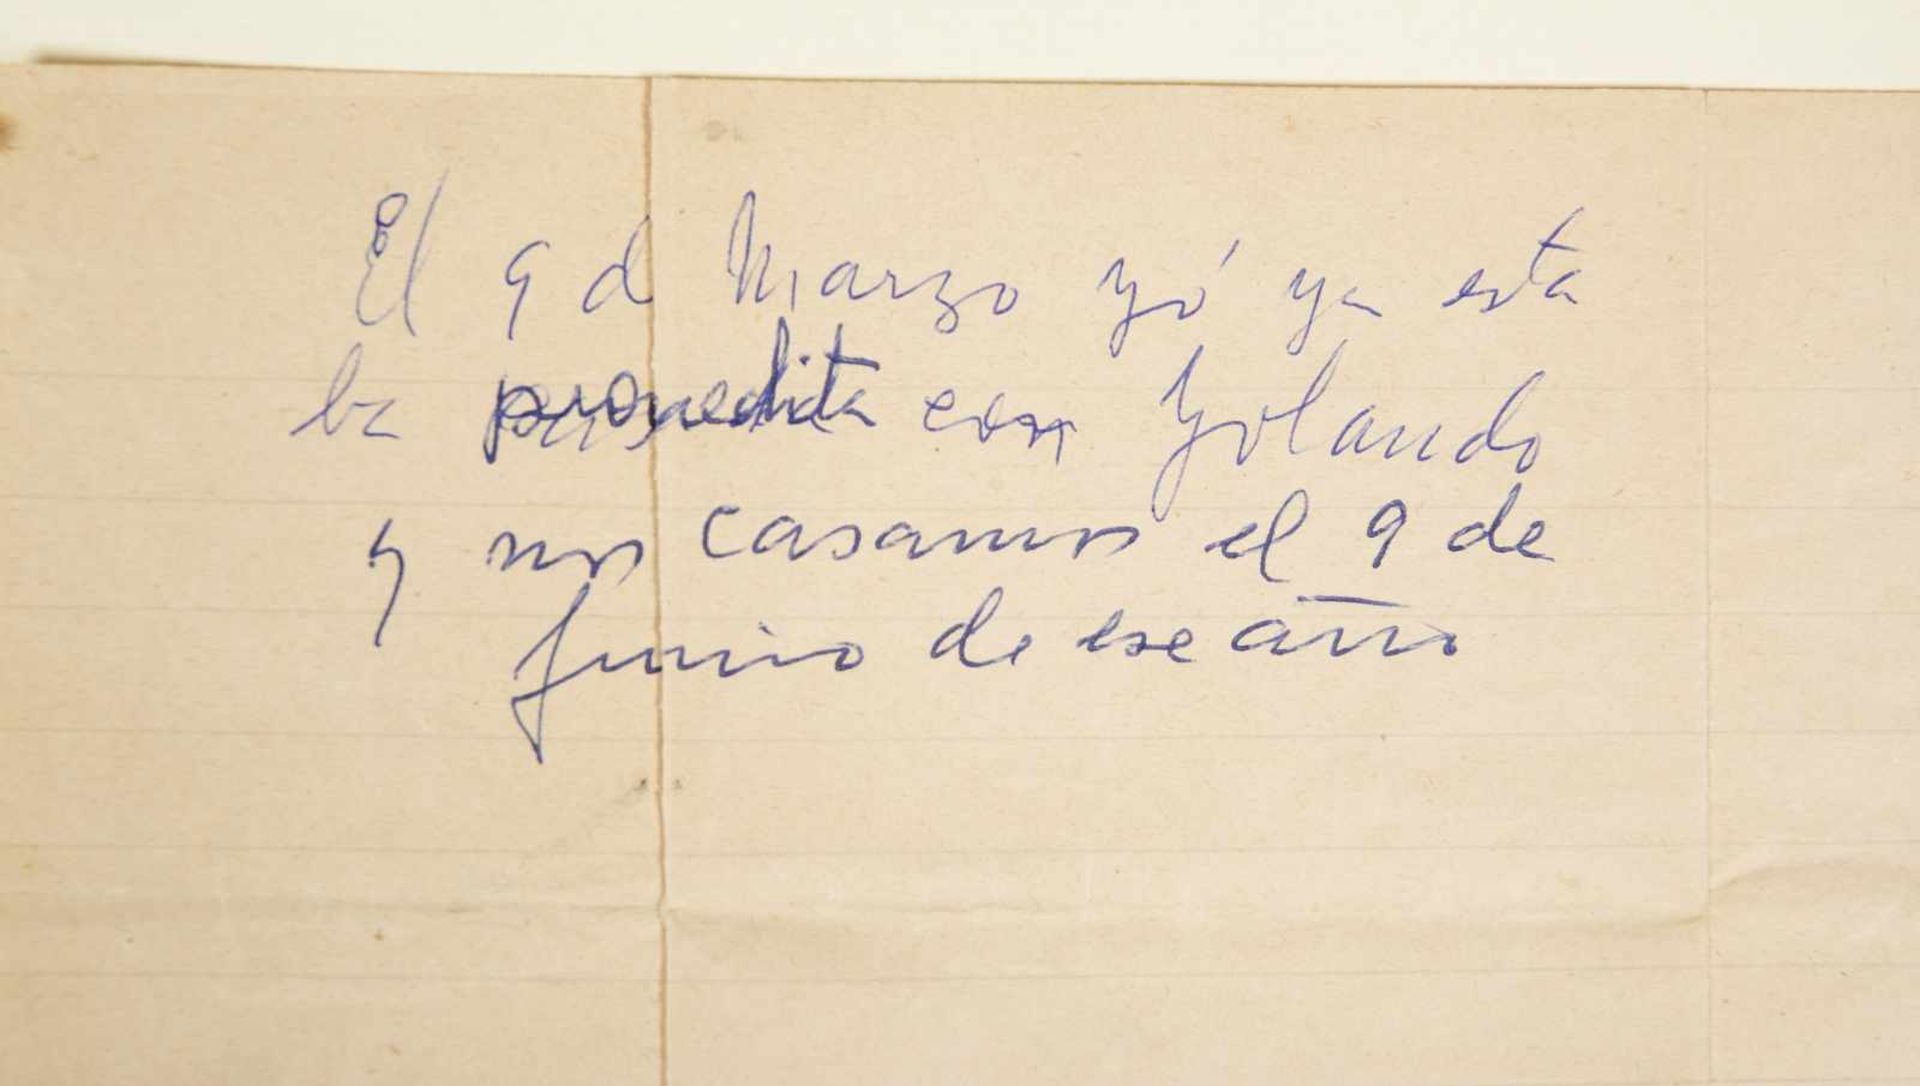 El 9 d Marzo yó ya esta
ba con Yolando
y nos casamos el 9 de
Junio de ese año